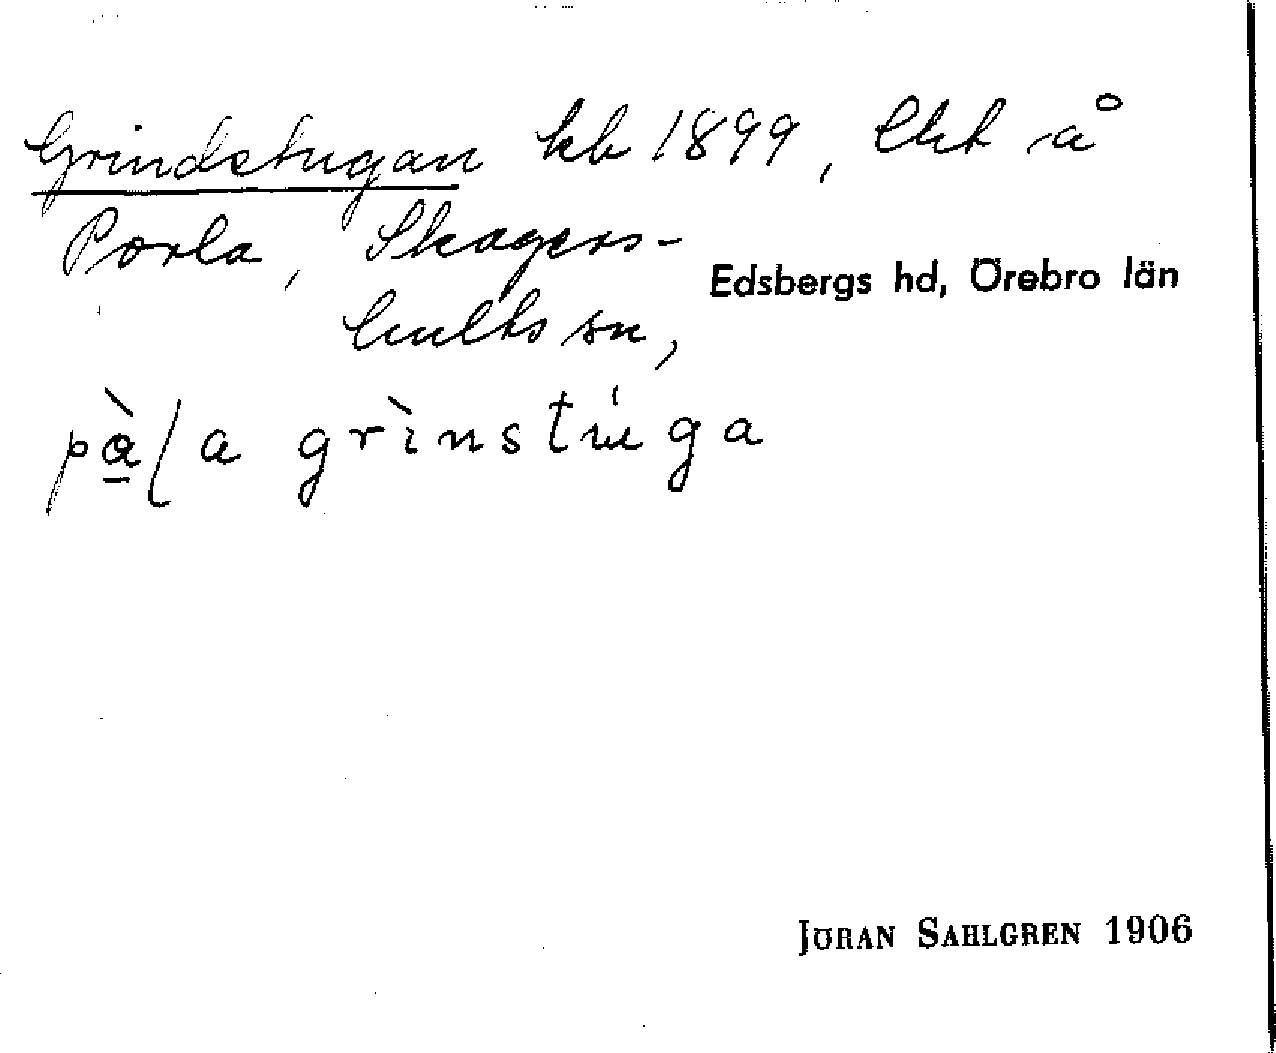 Grindstugan kb 1899, lht å
Porla, Skagers-
hults sn,
Edsbergs hd, Örebro län
grìnstuga
JÖRAN SAHLGREN 1906